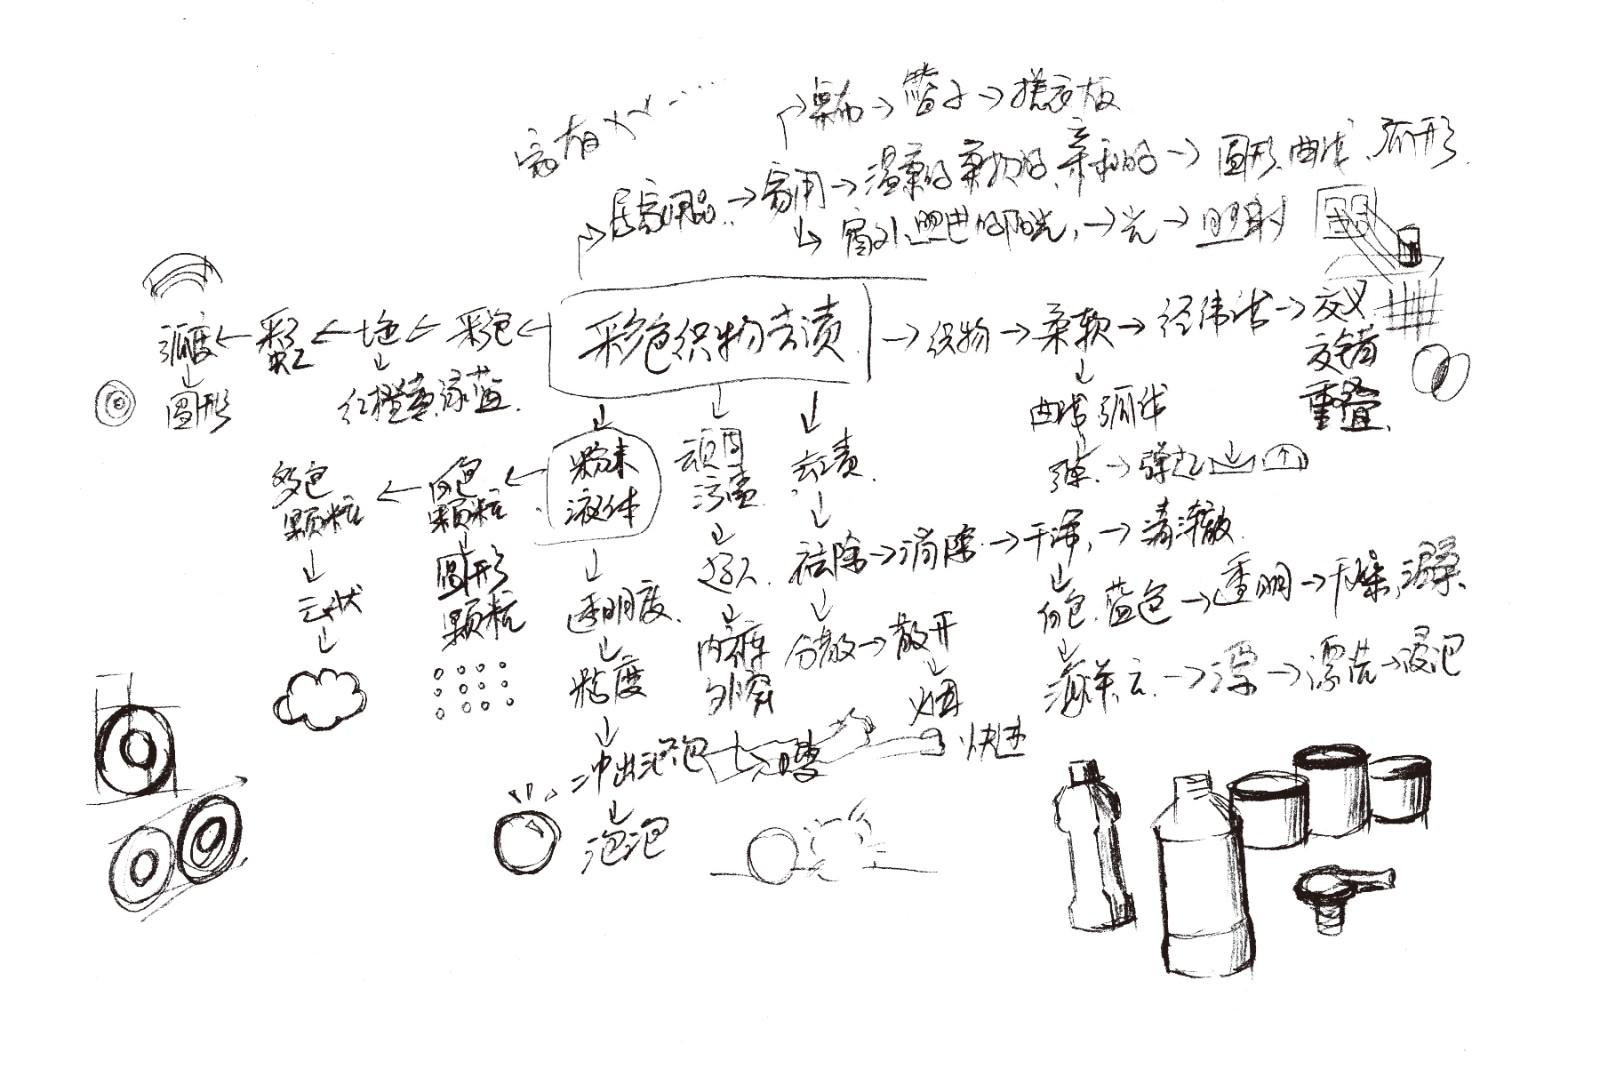 家有
桌布→ →搓衣板
居家用品→家用→温柔的 柔软的、亲和的→圆形、曲线、弧形
窗外照进的阳光,→光→照射
弧度←彩虹←七色←彩色←彩色织物去渍→织物→柔软→经纬线→交叉
交错
重叠
圆形
红橙黄绿蓝
曲线 弧线
弹→弹起
多色颗粒←白色颗粒←粉末
液体
顽固
污渍
去渍
祛除→消除→干净,→清澈
云状
圆形
颗粒
透明度
白色、蓝色→透明→干燥,
内裤
分散→散开
粘度
海洋、云→漂→漂洗→浸泡
烟
冲出泡泡
快速
泡泡